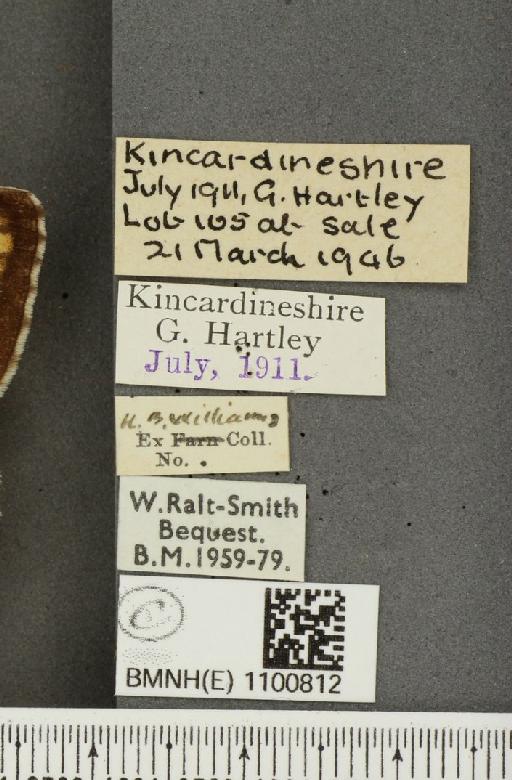 Kincardineshire
July 1911, G. Hartley
Lot 105 at sale
21 March 1946
Kincardineshire
G. Hartley
July, 1911.
H. B. Williams
Ex Farn Coll.
No. .
W. Rait-Smith
Bequest.
B.M.1959-79.
C
BMNH(E) 1100812